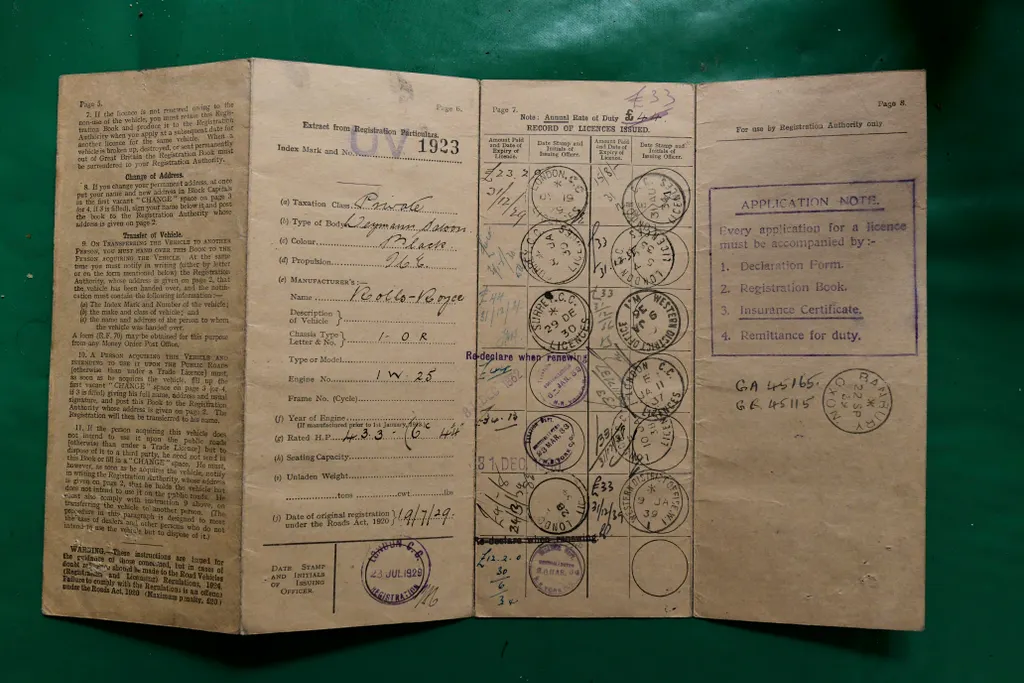 Page 5.
7. If the licence is not renewed owing to the
non-use of the vehicle, you must retain this Regis-
tration Book and produce it to the Registration
Authority when you apply at a subsequent date for
another licence for the same vehicle. When a
vehicle is broken up, destroyed, or sent permanently
out of Great Britain the Registration Book must
be surrendered to your Registration Authority.
Change of Address.
8. If you change your permanent address, at once
put your name and new address in Block Capitals
in the first vacant "CHANGE" space on page 3
(or 4, if 3 is filled), sign your name below it and post
the book to the Registration Authority whose
address is given on page 2.
Transfer of Vehicle.
9. ON TRANSFERRING THE VEHICLE TO ANOTHER
PERSON, YOU MUST HAND OVER THIS BOOK TO THE
PERSON ACQUIRING THE VEHICLE. At the same
time you must notify in writing (either by letter
or on the form mentioned below) the Registration
Authority, whose address is given on page 2, that
the vehicle has been handed over, and the notifi-
cation must contain the following information:—
(a) The Index Mark and Number of the vehicle;
(b) the make and class of vehicle; and
(c) the name and address of the person to whom
the vehicle was handed over.
A form (R.F. 70) may be obtained for this purpose
from any Money Order Post Office.
10. A PERSON ACQUIRING THE VEHICLE AND
INTENDING TO USE IT UPON THE PUBLIC ROADS
(otherwise than under a Trade Licence) must,
as soon as he acquires the vehicle, fill up the
first vacant "CHANGE" space on page 3 (or 4,
if 3 is filled) giving his full name, address and usual
signature, and post this Book to the Registration
Authority whose address is given on page 2. The
Registration will then be transferred to his name.
11. If the person acquiring this vehicle does
not intend to use it upon the public roads
(otherwise than under a Trade Licence) but to
dispose of it to a third party, he need not send in
this Book or fill in a "CHANGE" space. He must,
however, as soon as he acquires the vehicle, notify
in writing the Registration Authority, whose address
is given on page 2, that he holds the vehicle but
does not intend to use it on the public roads. He
must also comply with instruction 9 above, on
transferring the vehicle to another person. (The
procedure in this paragraph is designed to meet
the case of dealers and other persons who do not
intend to use the vehicle but to dispose of it).
WARNING.—These instructions are issued for
the guidance of those concerned, but in cases of
doubt reference should be made to the Road Vehicles
(Registration and Licensing) Regulations, 1924.
Failure to comply with the Regulations is an offence
under the Roads Act, 1920 (Maximum penalty, £20)
Page 6.
Extract from Registration Particulars.
Index Mark and No. UV 1923
(a) Taxation Class Private
(b) Type of Body Weymann Saloon
(c) Colour Black
(d) Propulsion
(e) MANUFACTURER'S:—
Name Rolls-Royce
Description
of Vehicle
Chassis Type
Letter & No. 1-OR
Type or Model
Engine No. 1W.25
Frame No. (Cycle)
(f) Year of Engine
(If manufactured prior to 1st January,
(g) Rated H.P. 43.3 (6
(h) Seating Capacity
(i) Unladen Weight
tons cwt. lbs
(j) Date of original registration
under the Roads Act, 1920 19/7/29
DATE STAMP
AND INITIALS
OF ISSUING
OFFICER.
LONDON C.C.
23 JUL 1929
REGISTRATION
Page 7.
£33
Note: Annual Rate of Duty £44
RECORD OF LICENCES ISSUED.
Amount Paid
and Date of
Expiry of
Licence.
Date Stamp and
Initials of
Issuing Officer.
Amount Paid
and Date of
Expiry of
Licence.
Date Stamp and
Initials of
Issuing Officer.
31/12/29
LONDON C.C.
SURREY C.C.
LICENCES
£33
SURREY C.C.
29 DE
30
LICENCES
£33
WESTERN DISTRICT OFFICE W.1
Re-declare when renewing
LONDON C.C.
JA 11
37
LICENCES
31 DEC
LONDON
£33
31/12/39
WESTERN DISTRICT OFFICE W.1
9 JA
39
Re-declare when renewing
£12.2.0
Page 8.
For use by Registration Authority only
APPLICATION NOTE.
Every application for a licence
must be accompanied by:-
1. Declaration Form.
2. Registration Book.
3. Insurance Certificate.
4. Remittance for duty.
GA 45165.
GR 45115
BANBURY
22 SP
39
OXON